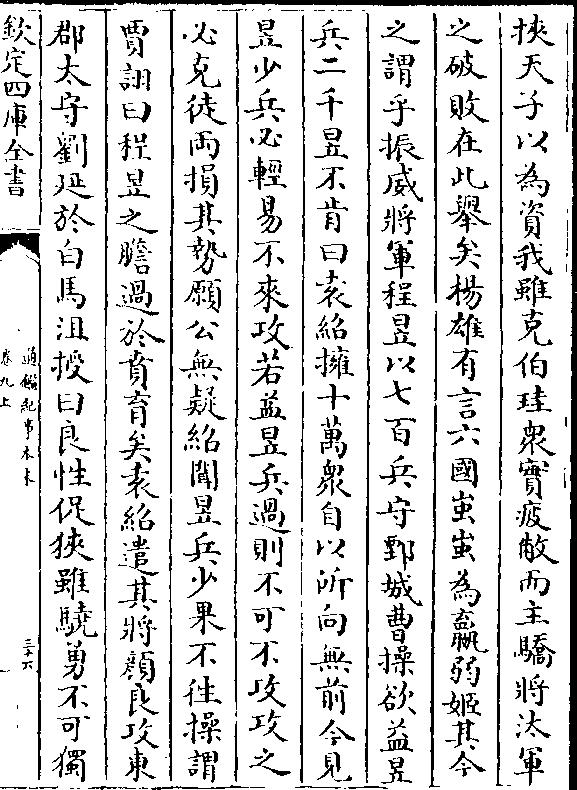 挾天子以為資我雖克伯珪衆實疲敝而主驕將汰軍
之破敗在此舉矣楊雄有言六國蚩蚩為嬴弱姬其今
之謂乎振威將軍程昱以七百兵守鄄城曹操欲益昱
兵二千昱不肯曰袁紹擁十萬衆自以所向無前今見
昱少兵必輕易不來攻若益昱兵過則不可不攻攻之
必克徒兩損其勢願公無疑紹聞昱兵少果不往操謂
賈詡曰程昱之膽過於賁育矣袁紹遣其將顔良攻東
郡太守劉延於白馬沮授曰良性促狹雖驍勇不可獨
欽定四庫全書
通鑑紀事本末
卷九上
三十六